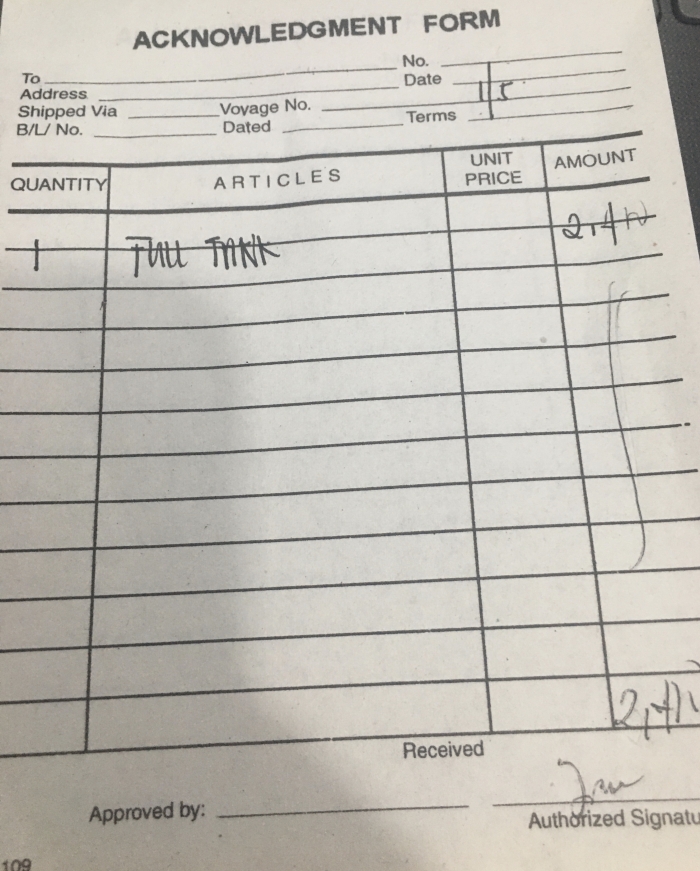 ACKNOWLEDGMENT FORM
No.
To
Date
Address
Shipped Via Voyage No.
Terms
B/L/ No. Dated
QUANTITY ARTICLES UNIT PRICE AMOUNT
1 FULL TANK
Received
Approved by:
Authorized Signatu
109